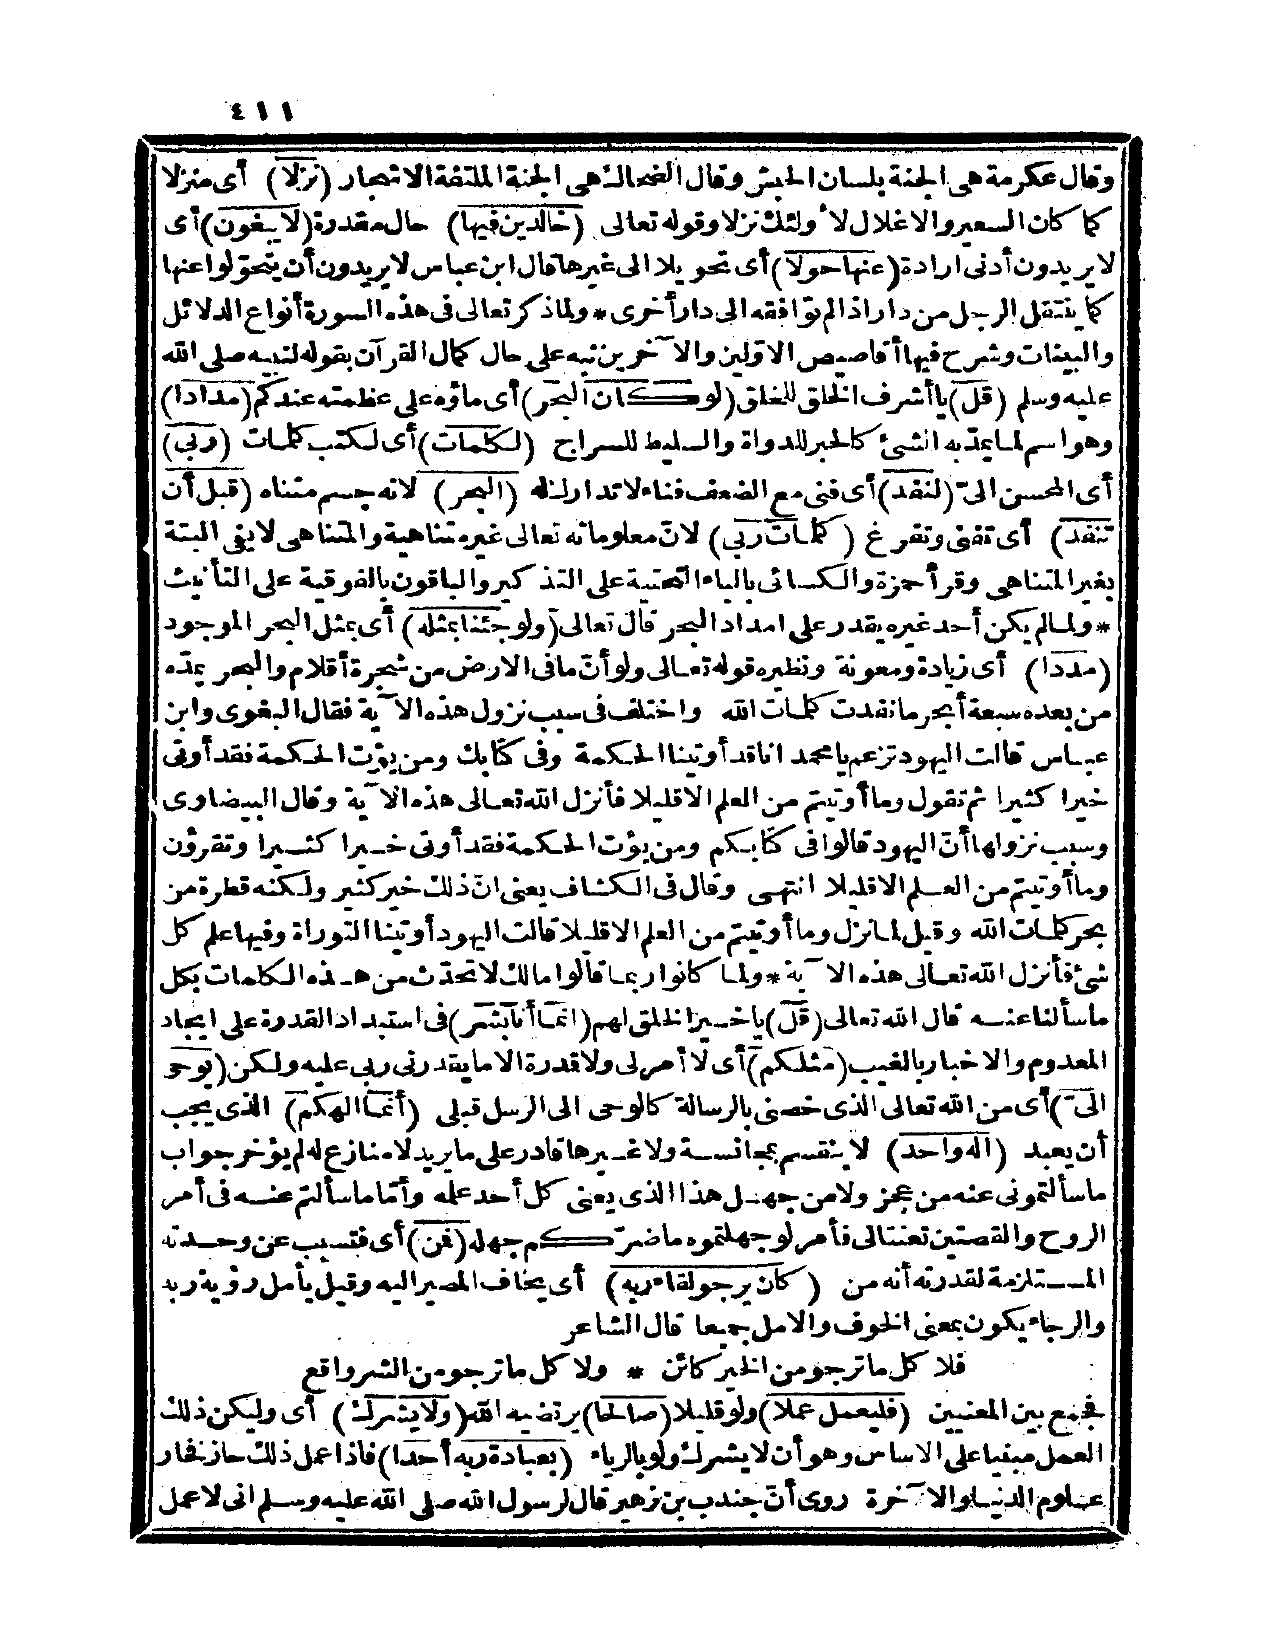 ٤١١
وقال عكرمة هى الجنة بلسان الحبش وقال الضحاك هى الجنة الملتفة الاشجار (نزلا) أى منزلا
كما كان السعير والاغلال لاولئك نزلا وقوله تعالى (خالدين فيها) حال مقدرة (لا يبغون) أى
لا يريدون أدنى ارادة (عنها حولا) أى تحويلا الى غيرها قال ابن عباس لا يريدون أن يتحوّلوا عنها
كما ينتقل الرجل من دار اذا لم توافقه الى دار أخرى * ولما ذكر تعالى فى هذه السورة أنواع الدلائل
والبينات وشرح فيها أقاصيص الاوّلين والآخرين نبه على حال كمال القرآن بقوله لنبيه صلى الله
عليه وسلم (قل) يا أشرف الخلق للخلق (لو كان البحر) أى ماؤه على عظمته عندكم (مدادا)
وهو اسم لما يمدّ به الشئ كالحبر للدواة والسليط للسراج (لكلمات) أى لكتب كلمات (ربى)
أى المحسن الىّ (لنفد) أى فنى مع الضعف فناء لا تدارك له (البحر) لانه جسم متناه (قبل أن
تنفد) أى تفنى وتفرغ (كلمات ربى) لانّ معلوماته تعالى غير متناهية والمتناهى لا يفى البتة
بغير المتناهى وقرأ حمزة والكسائى بالياء التحتية على التذكير والباقون بالفوقية على التأنيث
* ولما لم يكن أحد غيره يقدر على امداد البحر قال تعالى (ولو جئنا بمثله) أى بمثل البحر الموجود
(مددا) أى زيادة ومعونة ونظيره قوله تعالى ولو أنّ ما فى الارض من شجرة أقلام والبحر يمدّه
من بعده سبعة أبحر ما نفدت كلمات الله واختلف فى سبب نزول هذه الآية فقال البغوى وابن
عباس قالت اليهود تزعم يا محمد انا قد أوتينا الحكمة وفى كتابك ومن يؤت الحكمة فقد أوتى
خيرا كثيرا ثم تقول وما أوتيتم من العلم الا قليلا فأنزل الله تعالى هذه الآية وقال البيضاوى
وسبب نزولها أنّ اليهود قالوا فى كتابكم ومن يؤت الحكمة فقد أوتى خيرا كثيرا وتقرؤن
وما أوتيتم من العلم الا قليلا انتهى وقال فى الكشاف يعنى انّ ذلك خير كثير ولكنه قطرة من
بحر كلمات الله وقيل لما نزل وما أوتيتم من العلم الا قليلا قالت اليهود أوتينا التوراة وفيها علم كل
شئ فأنزل الله تعالى هذه الآية * ولما كانوا ربما قالوا مالك لا تحدّث من هذه الكلمات بكل
ما سألنا عنه قال الله تعالى (قل) يا خير الخلق لهم (انما أنا بشر) فى استبداد القدرة على ايجاد
المعدوم والاخبار بالغيب (مثلكم) أى لا أمر لى ولا قدرة الا ما يقدرنى ربى عليه ولكن (يوحى
الىّ) أى من الله تعالى الذى خصنى بالرسالة كالوحى الى الرسل قبلى (أنما الهكم) الذى يجب
أن يعبد (اله واحد) لا ينقسم بمجانسة ولا غيرها قادر على ما يريد لا منازع له لم يؤخر جواب
ما سألتمونى عنه من عجز ولا من جهل هذا الذى يعنى كل أحد علمه وأمّا ما سألتم عنه فى أمر
الروح والقصتين تعنتا لى فأمر لو جهلتموه ما ضرّكم جهله (فمن) أى فتسبب عن وحدته
المستلزمة لقدرته أنه من (كان يرجو لقاء ربه) أى يخاف المصير اليه وقيل يأمل رؤية ربه
والرجاء يكون بمعنى الخوف والامل جميعا قال الشاعر
فلا كل ما ترجو من الخير كائن * ولا كل ما ترجو من الشر واقع
فجمع بين المعنيين (فليعمل عملا) ولو قليلا (صالحا) يرتضيه الله (ولا يشرك) أى وليكن ذلك
العمل مبنيا على الاساس وهو أن لا يشرك ولو بالرياء (بعبادة ربه أحدا) فاذا عمل ذلك حاز فخار
علوم الدنيا والآخرة روى أنّ جندب بن زهير قال لرسول الله صلى الله عليه وسلم انى لاعمل